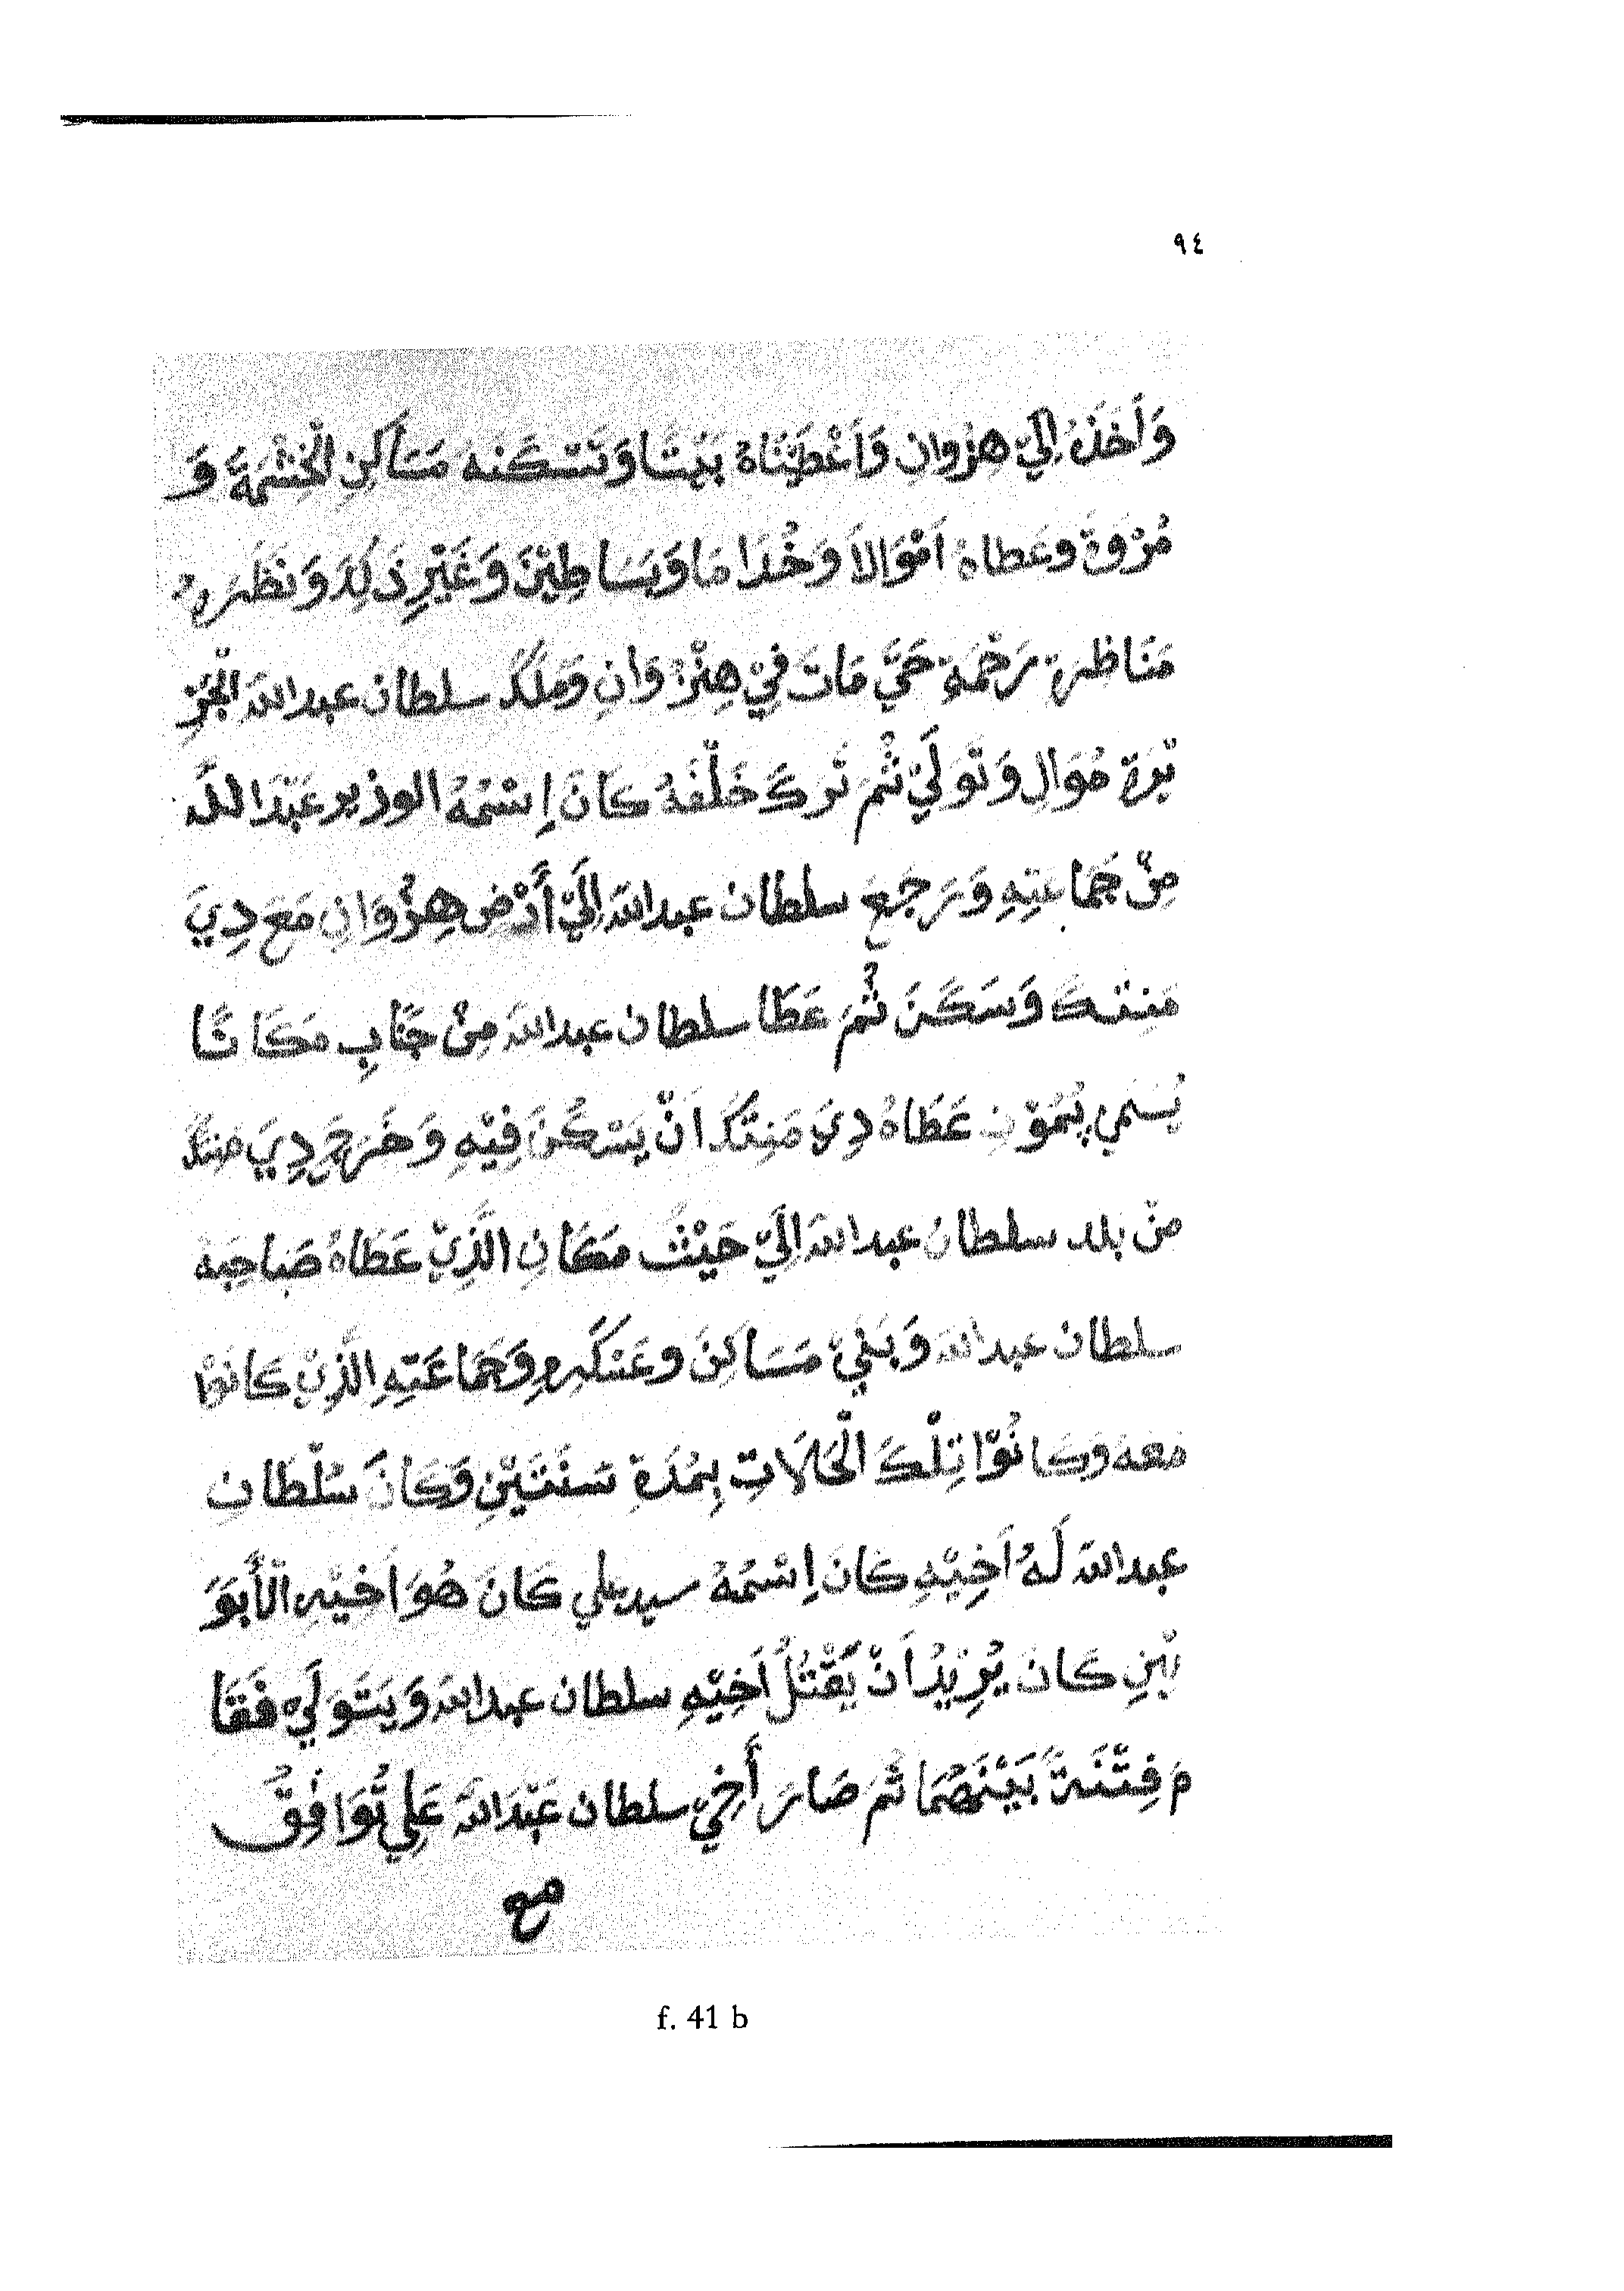 ٩٤
وَأَخَذَهُ اِلَيْ هِزْوَانِ وَاَعْطَيْنَاهُ بَيْتًا وَتَسْكَنه مَسَاكِنِ الْحِشْمَةِ وَ
مُرْوَةَ وعَطاهُ اَمْوَالاً وَخُدَامَا وَبَسَاطِيْنَ وَغَيْرِ ذَلِكَ وَنَظَرَهُ
مَنَاظِرَةَ رَحْمَةِ حَتَّي مَاتَ فِيْ هِنْزُوَانِ وَمَلَكَ سلطان عبد الله الْجَزِ
يْرَةَ مُوَالِ وَتَوَلَيْ ثُمَ تَرَكَ خَلْفَهُ كَانَ اِسْمُهُ الوزير عَبْدَ اللَّه
مِنْ جَمَاعَتِهِ وَرَجَعَ سلطان عبد الله اِلَيْ أَرْضِ هِزُوَانِ مَعَ دِيَ
مَنِتكَ وَسَكَنَ ثُمَ عَطَا سلطان عبد الله مِنْ جَنَابِ مَكَانًا
يُسَمي پُمُوْنِ عَطَاهُ دِيَ مَنِتكَ اَنْ يَسْكُنَ فِيْهِ وَخَرَجَ دِيَ مَنِتكَ
مِنْ بلد سلطانُ عبد الله اِلَيْ حَيْثُ مَكَانِ الَّذِيْ عَطَاهُ صَاحِبهُ
سلطان عبد الله وَبَنَيْ مَسَاكِنَ وعَسْكَرِهِ وَجَمَاعَتِهِ الَّذِيْ كَانُوْا
مَعَهُ وَكَانُوْا تِلْكَ الْحَالَاتِ بِمُدَةِ سَنَتَيْنِ وَكَانَ سُلْطَانِ
عبد الله لَهُ اَخِيْهِ كَانَ اِسْمُهُ سيد علي كَانَ هُوَ اَخِيْهِ الْأَبَوَ
يْنِ كَانَ يُرِيْدُ اَنْ يَقْتُلُ اَخِيْهِ سلطان عبد الله وَيَتَوَلَيْ فَقَا
مَ فِتْنَةً بَيْنَهُمَا ثُمَ صَارَ أَخِيْ سلطان عَبْدَ اللهَ عَلي تُوَافُقُ
مع
f. 41 b